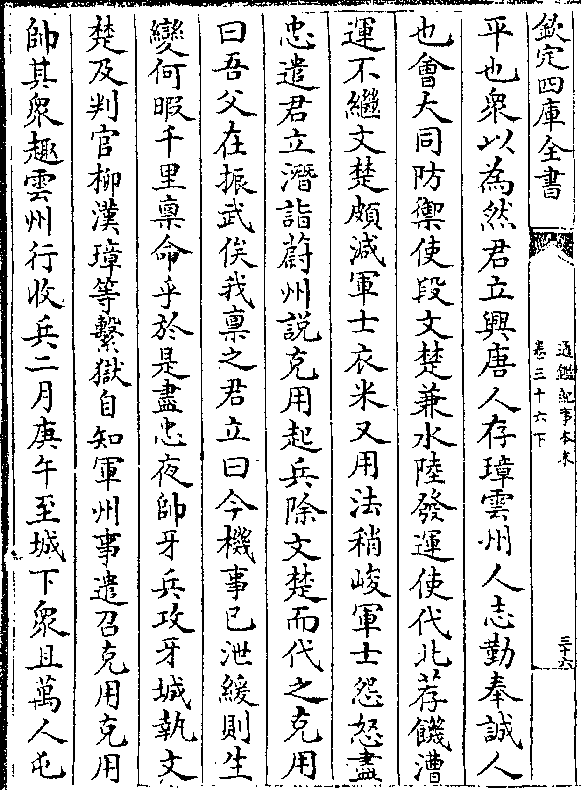 欽定四庫全書
通鑑紀事本末
卷三十六下
三十六
平也衆以為然君立興唐人存璋雲州人志勤奉誠人
也會大同防禦使段文楚兼水陸發運使代北荐饑漕
運不繼文楚頗減軍士衣米又用法稍峻軍士怨怒盡
忠遣君立潛詣蔚州說克用起兵除文楚而代之克用
曰吾父在振武俟我稟之君立曰今機事已泄緩則生
變何暇千里稟命乎於是盡忠夜帥牙兵攻牙城執文
楚及判官柳漢璋等繫獄自知軍州事遣召克用克用
帥其衆趣雲州行收兵二月庚午至城下衆且萬人屯